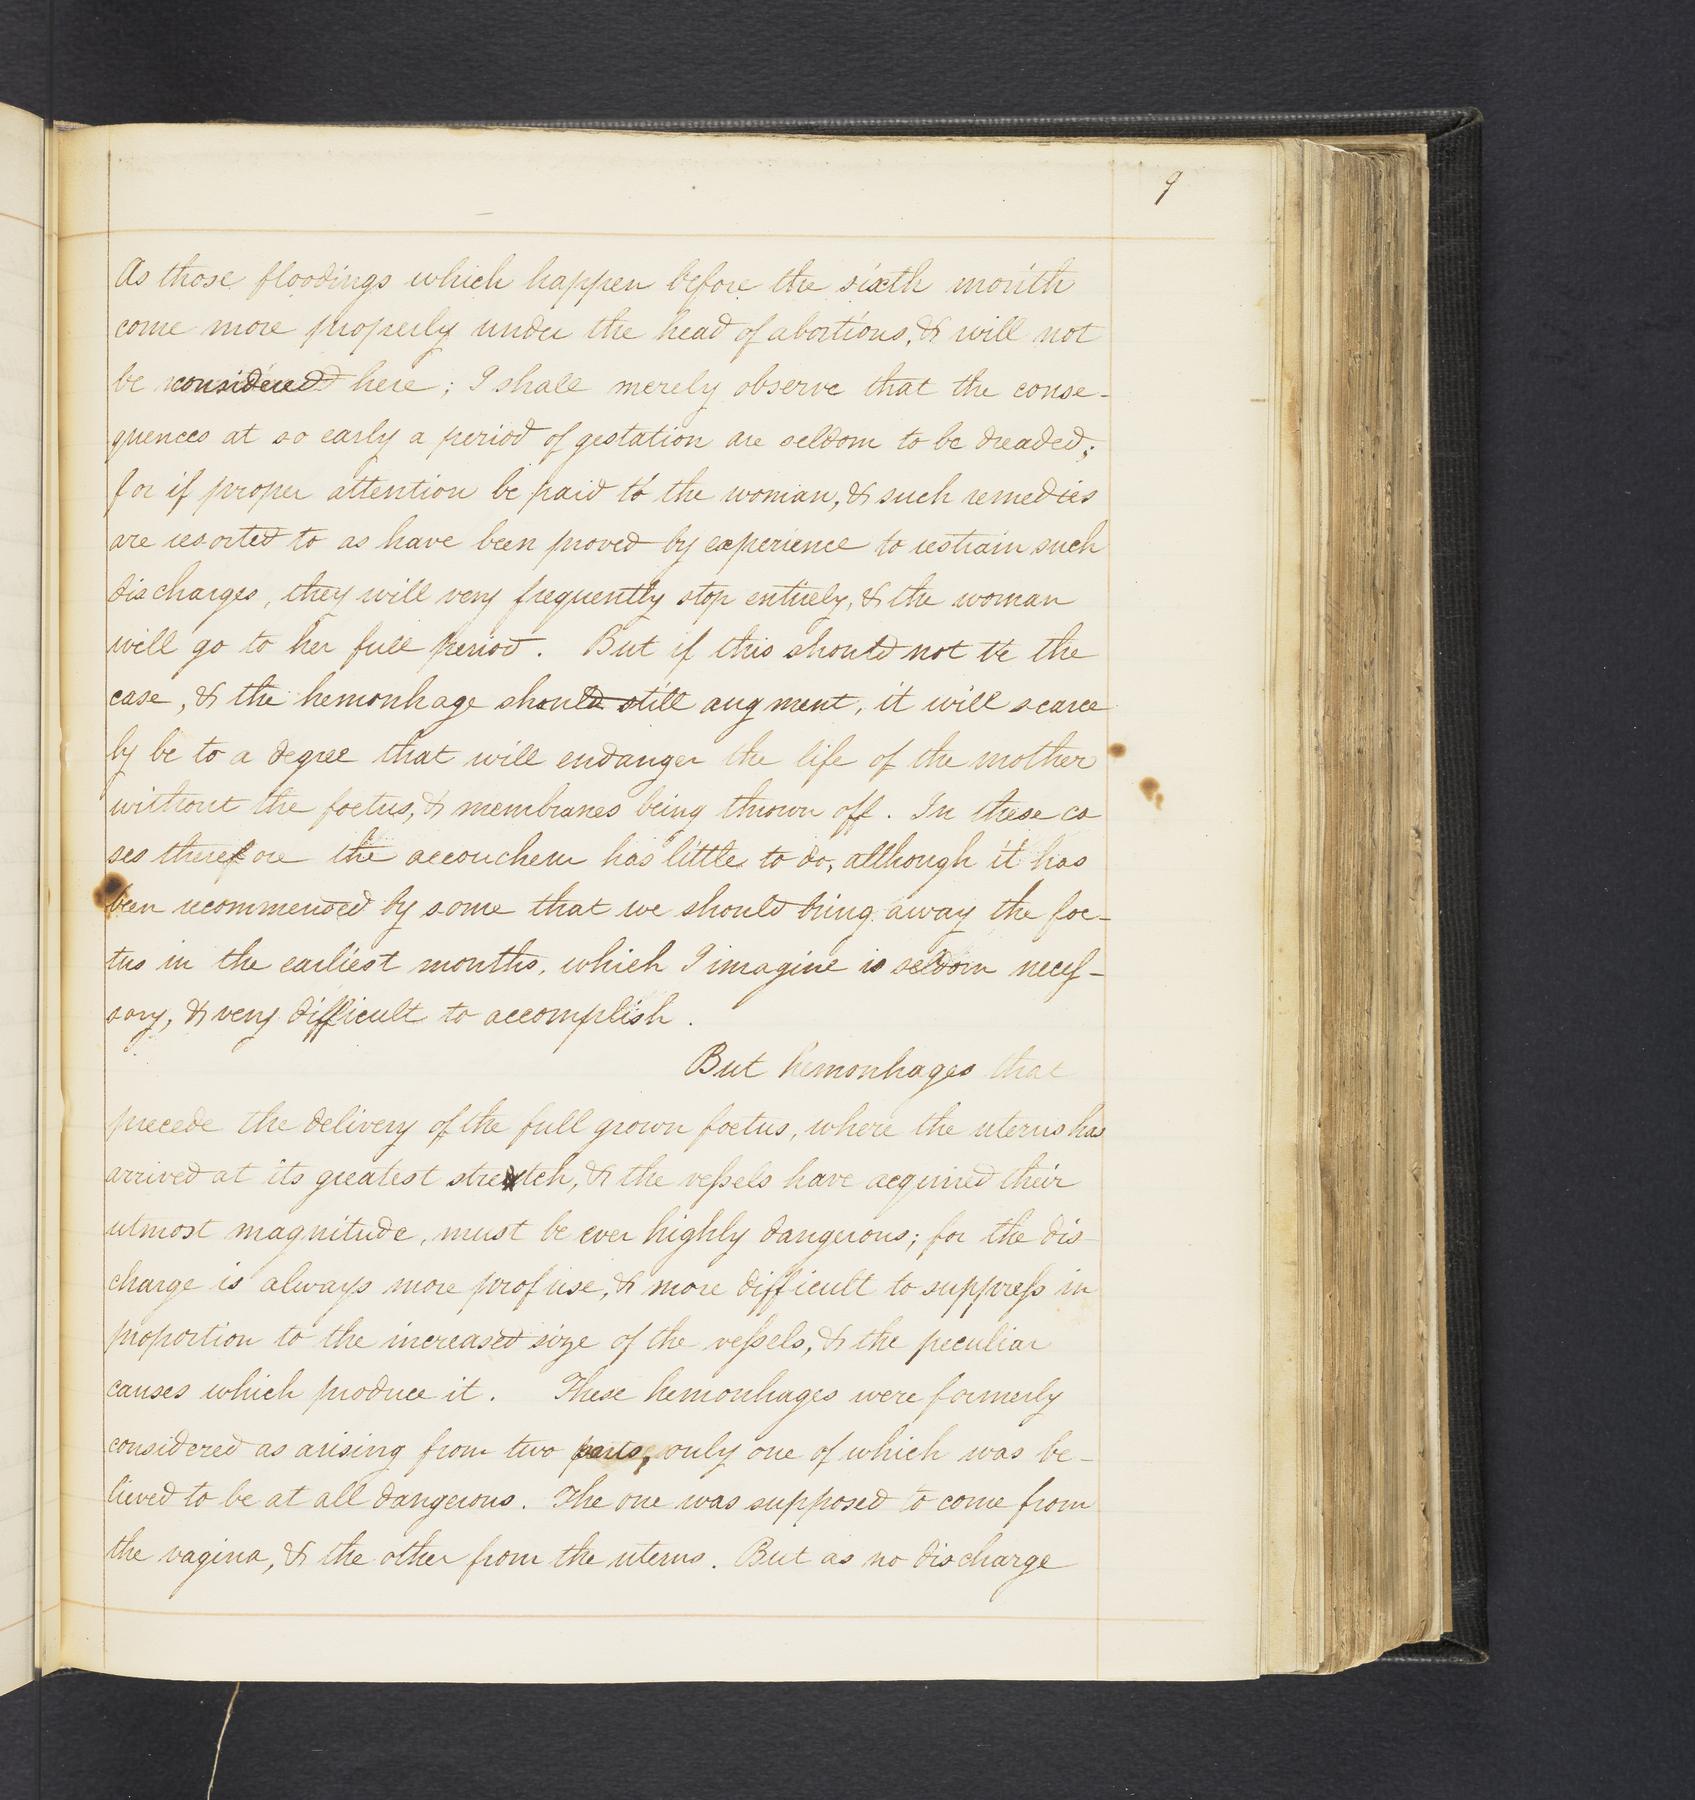 9
As those floodings which happen before the sixth month
come more properly under the head of abortions, & will not
be considered here; I shall merely observe that the conse-
quences at so early a period of gestation are seldom to be dreaded;
for if proper attention be paid to the woman, & such remedies
are resorted to as have been proved by experience to restrain such
discharges, they will very frequently stop entirely, & the woman
will go to her full period. But if this should not be the
case, & the hemorrhage should still augment, it will scarce
ly be to a degree that will endanger the life of the mother
without the foetus, & membranes being thrown off. In these ca
ses therefore the accoucheur has little to do, although it has
been recommended by some that we should bring away the foe-
tus in the earliest months, which I imagine is seldom neces-
sary, & very difficult to accomplish.
But hemorrhages that
precede the delivery of the full grown foetus, where the uterus has
arrived at its greatest stretch, & the vessels have acquired their
utmost magnitude, must be ever highly dangerous; for the dis-
charge is always more profuse, & more difficult to suppress in
proportion to the increased size of the vessels, & the peculiar
causes which produce it. These hemorrhages were formerly
considered as arising from two parts, only one of which was be-
lieved to be at all dangerous. The one was supposed to come from
the vagina, & the other from the uterus. But as no discharge